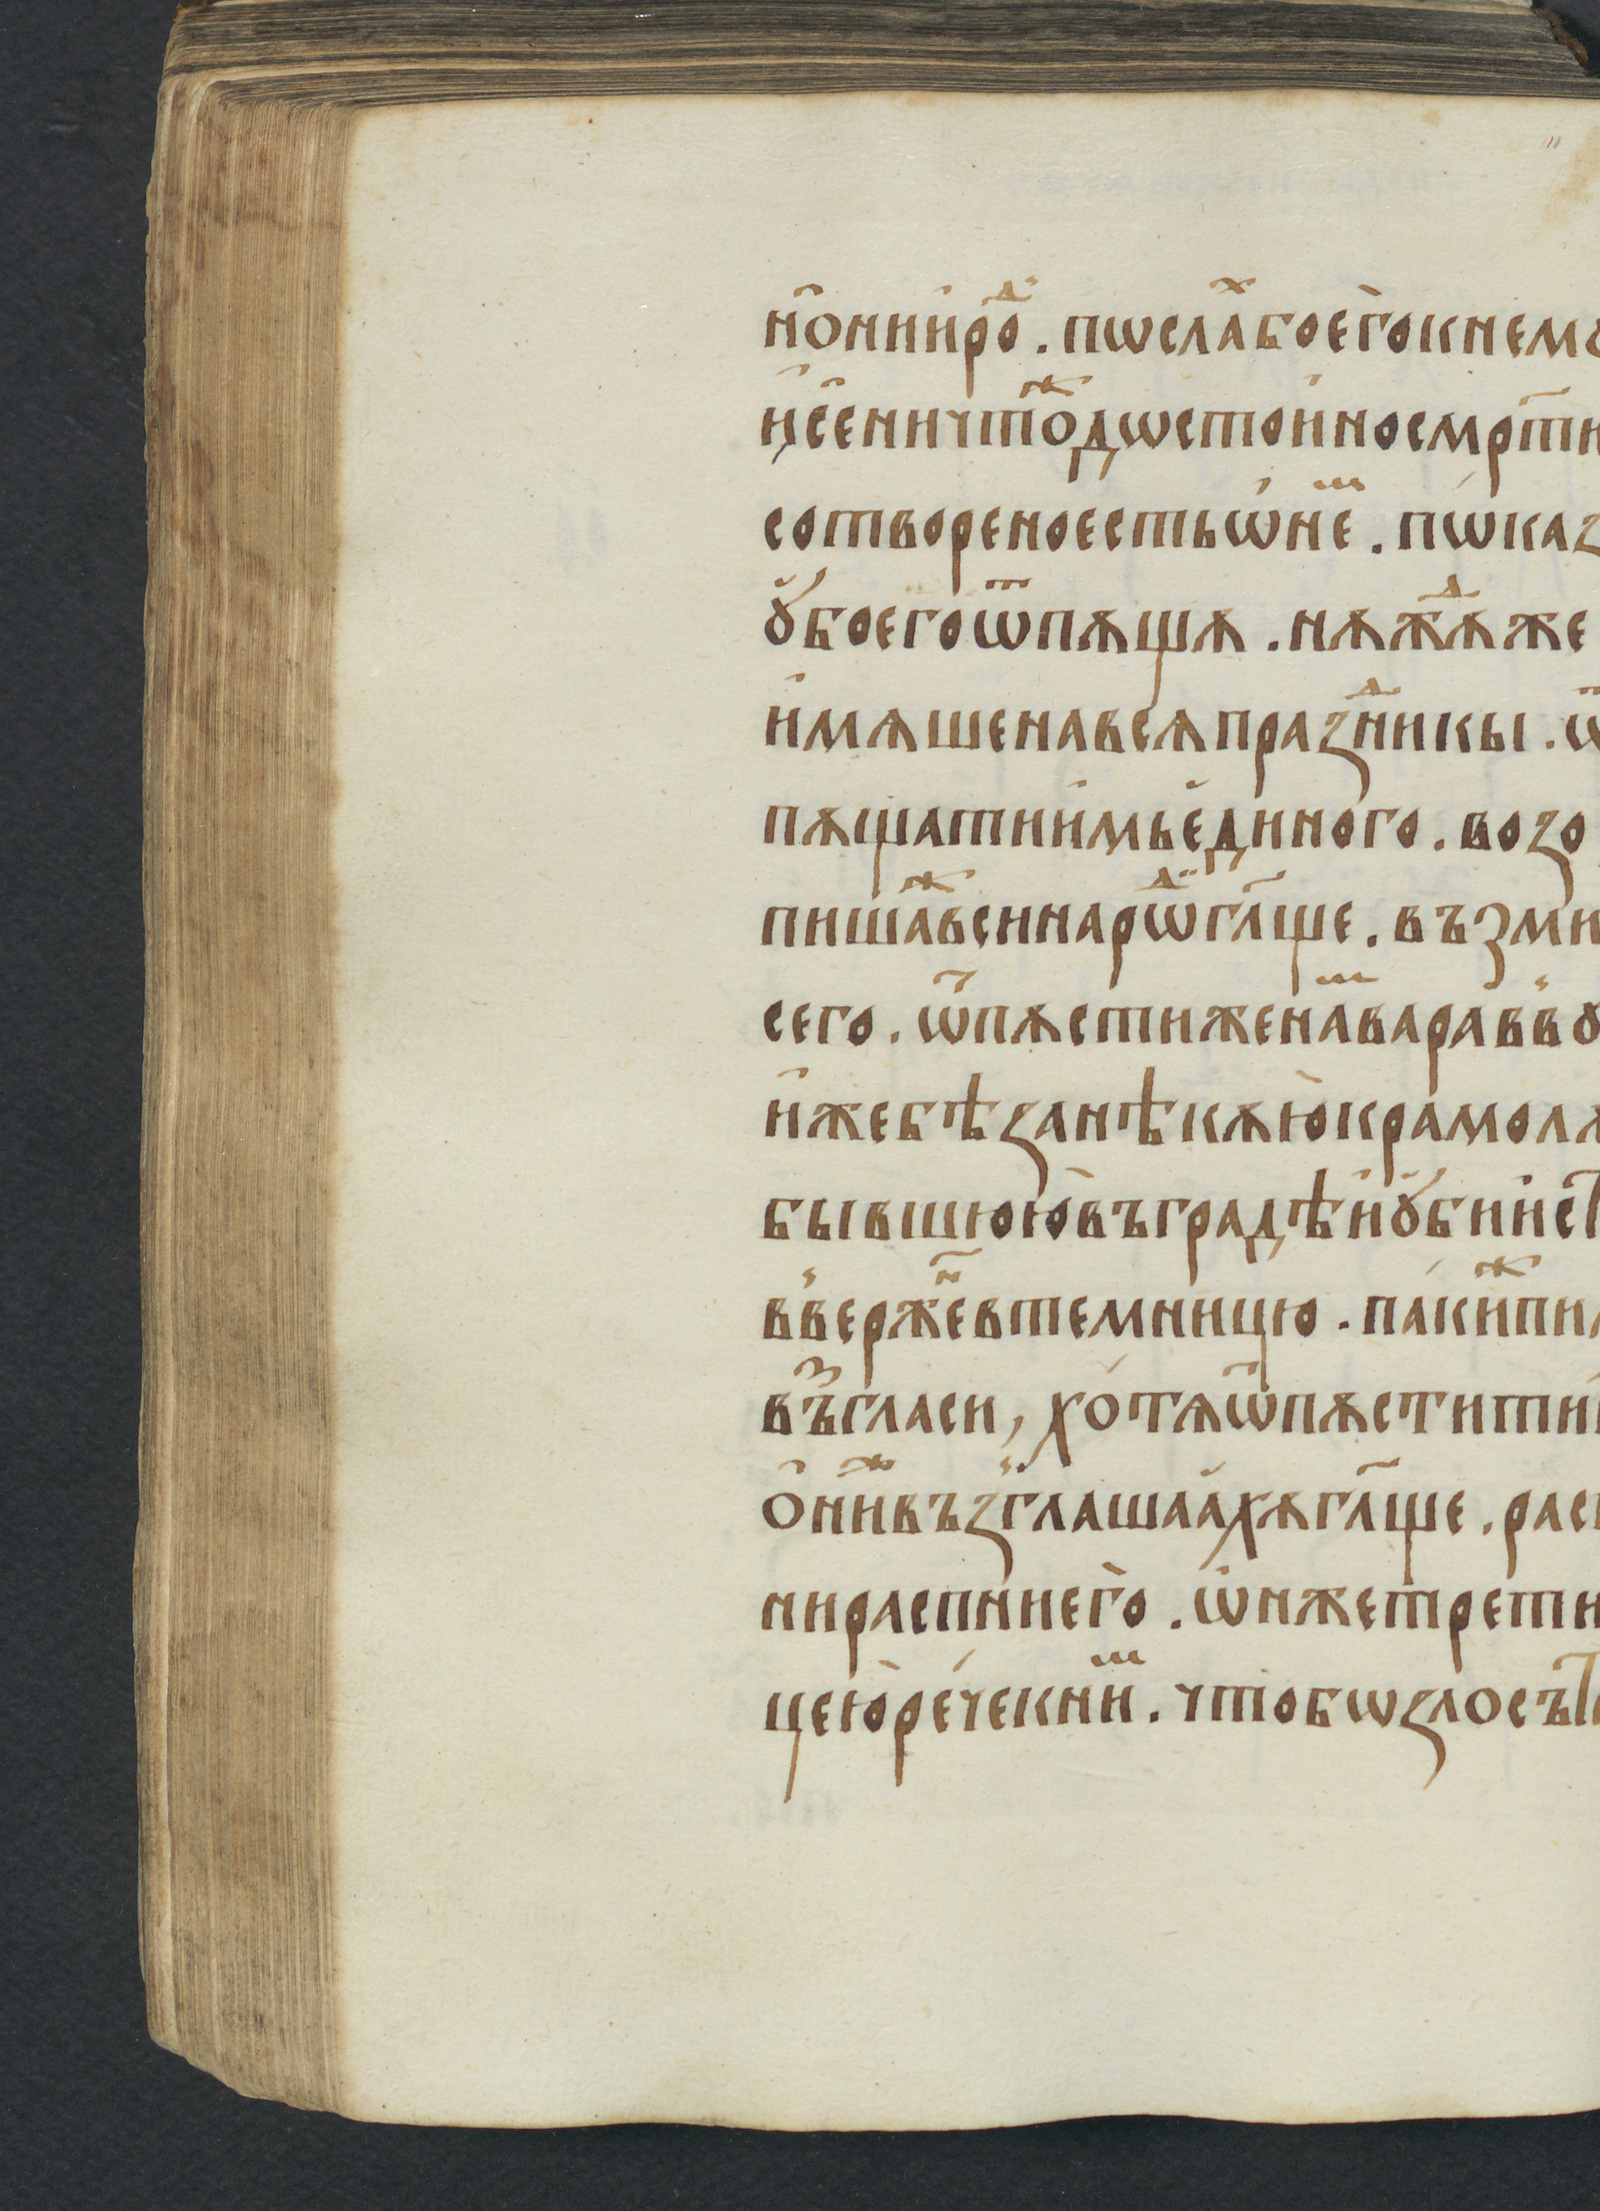 но ни иро́ⷣ . пѡслаⷯ бо его̀ к немꙋ
и҆ се ничтоⷤ дѡстоино смр҃ти
сотворено есть ѡ҆ неⷨ . пѡказ
ꙋ҆бо его ѿпꙋщꙋ . нꙋжⷣꙋ же
имѧше на всѧ празⷣникы . ѿ
пꙋщати имь единого . возо
пишаⷤ вси нарѡⷣ гл҃ще . възми
сего . ѿпꙋсти же наⷨ варавв꙽ꙋ
иже бѣ за нѣкꙋю крамолꙋ
бывшюю въ градѣ и ꙋбиист
в꙽вержеⷩ в темницю . паки́ⷤ пил
въⷥгласи, хотѧ ѿпꙋстити і
ониⷤ възглашаахꙋ гл҃ще . расп
ни распни его̀ . ѡ҆н же трети
цею ре́че к ниⷨ . что бѡ зло сът